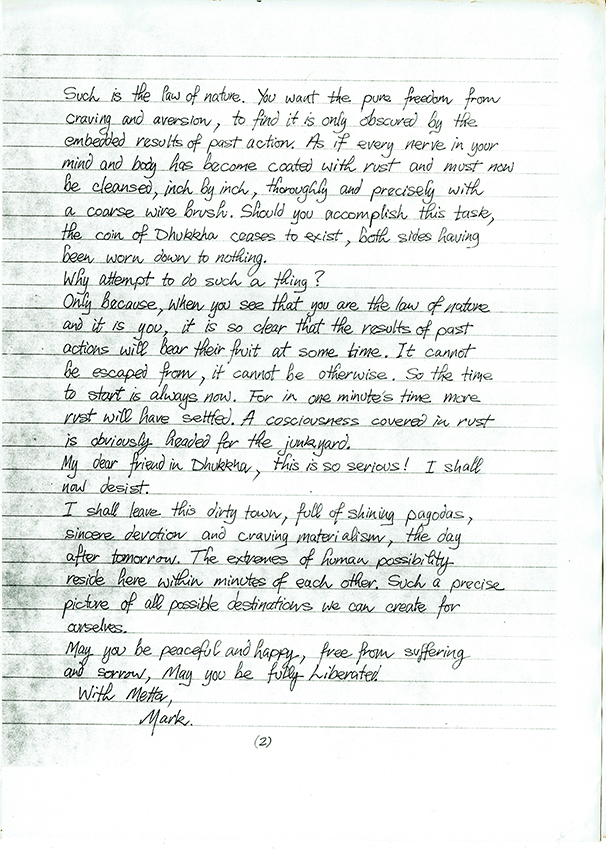 Such is the law of nature. You want the pure freedom from
craving and aversion, to find it is only obscured by the
embedded results of past action. As if every nerve in your
mind and body has become coated with rust and must now
be cleansed, inch by inch, thoroughly and precisely with
a coarse wire brush. Should you accomplish this task,
the coin of Dhukkha ceases to exist, both sides having
been worn down to nothing.
Why attempt to do such a thing?
Only because, when you see that you are the law of nature
and it is you, it is so clear that the results of past
actions will bear their fruit at some time. It cannot
be escaped from, it cannot be otherwise. So the time
to start is always now. For in one minute's time more
rust will have settled. A cosciousness covered in rust
is obviously headed for the junkyard.
My dear friend in Dhukkha, this is so serious! I shall
now desist.
I shall leave this dirty town, full of shining pagodas,
sincere devotion and craving materialism, the day
after tomorrow. The extremes of human possibility
reside here within minutes of each other. Such a precise
picture of all possible destinations we can create for
ourselves.
May you be peaceful and happy, free from suffering
and sorrow, May you be fully Liberated
With Metta,
Mark.
(2)